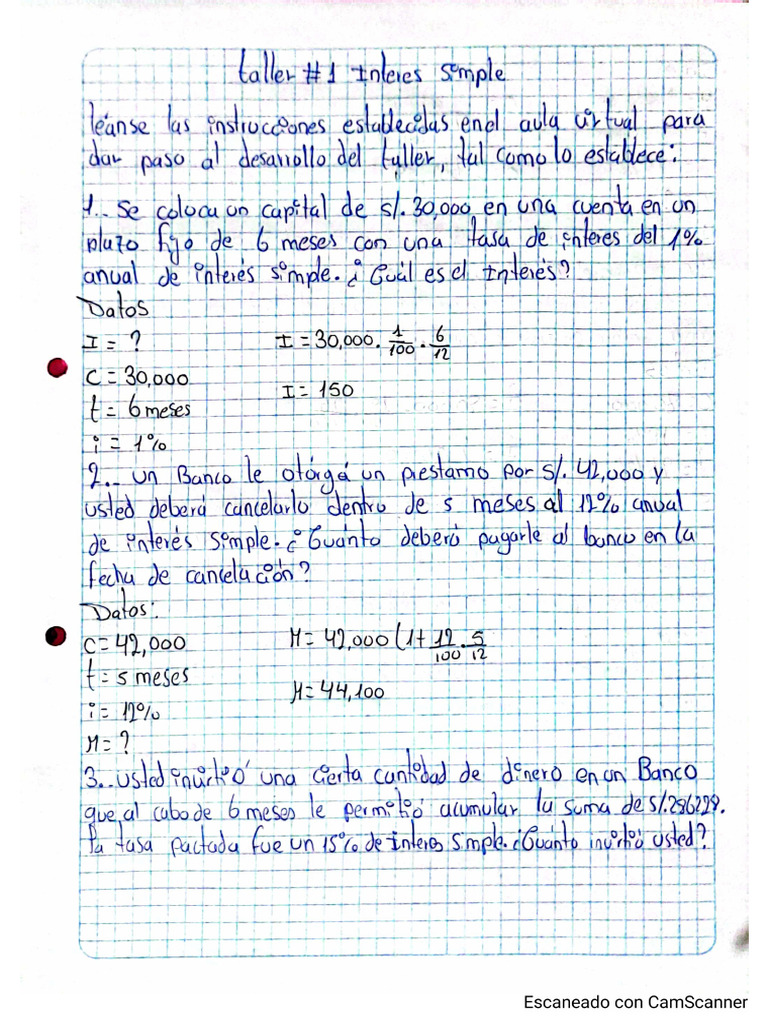 taller #1 Interes simple
leánse las instrucciones establecidas en el aula virtual para
dar paso al desarrollo del taller, tal como lo establece:
1.. Se coloca un capital de s/. 30,000 en una cuenta en un
plazo fijo de 6 meses con una tasa de interes del 1%
anual de interés simple. ¿Cuál es el Interés?
Datos
I = ? I = 30,000. 1/100 . 6/12
C = 30,000
I = 150
t = 6 meses
i = 1%
2.. un Banco le otorgá un prestamo por S/. 42,000 y
usted deberá cancelarlo dentro de 5 meses al 12% anual
de interés simple. ¿Cuánto deberá pagarle al banco en la
fecha de cancelación?
Datos:
C = 42,000 M = 42,000 (1+ 12/100 . 5/12
t = 5 meses
M = 44,100
i = 12%
M = ?
3.. usted invirtió una cierta cantidad de dinero en un Banco
que, al cabo de 6 meses le permitió acumular la suma de s/.286229.
la tasa pactada fue un 15% de Interes simple. ¿Cuánto invirtió usted?
Escaneado con CamScanner